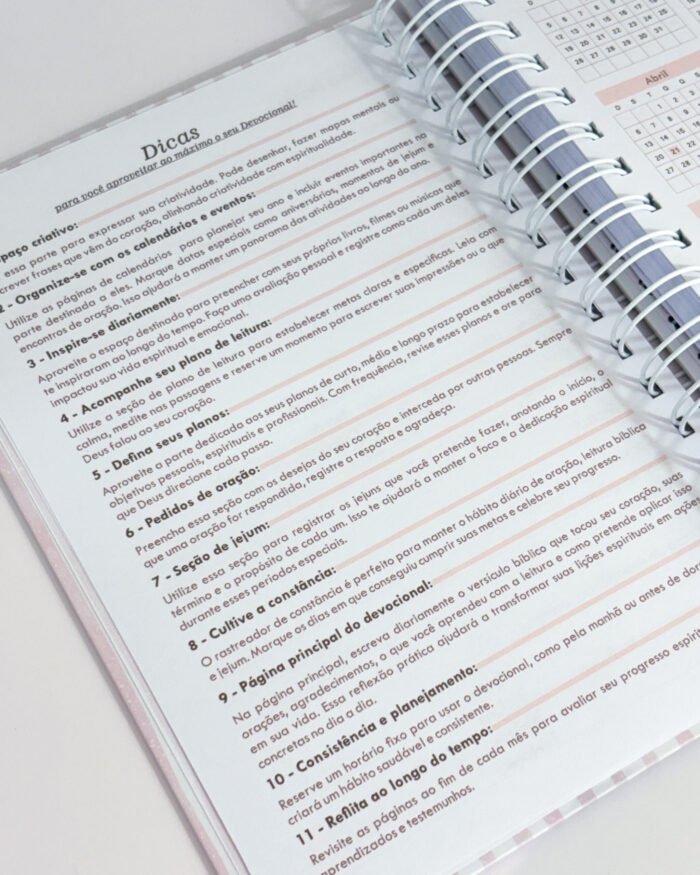 Dicas
para você aproveitar ao máximo o seu Devocional!
paço criativo:
essa parte para expressar sua criatividade. Pode desenhar, fazer mapas mentais ou
crever frases que vêm do coração, alinhando criatividade com espiritualidade.
2 - Organize-se com os calendários e eventos:
Utilize as páginas de calendários para planejar seu ano e incluir eventos importantes na
parte destinada a eles. Marque datas especiais como aniversários, momentos de jejum e
encontros de oração. Isso ajudará a manter um panorama das atividades ao longo do ano.
3 - Inspire-se diariamente:
Aproveite o espaço destinado para preencher com seus próprios livros, filmes ou músicas que
te inspiraram ao longo do tempo. Faça uma avaliação pessoal e registre como cada um deles
impactou sua vida espiritual e emocional.
4 - Acompanhe seu plano de leitura:
Utilize a seção de plano de leitura para estabelecer metas claras e específicas. Leia com
calma, medite nas passagens e reserve um momento para escrever suas impressões ou o que
Deus falou ao seu coração.
5 - Defina seus planos:
Aproveite a parte dedicada aos seus planos de curto, médio e longo prazo para estabelecer
objetivos pessoais, espirituais e profissionais. Com frequência, revise esses planos e ore para
que Deus direcione cada passo.
6 - Pedidos de oração:
Preencha essa seção com os desejos do seu coração e interceda por outras pessoas. Sempre
que uma oração for respondida, registre a resposta e agradeça.
7 - Seção de jejum:
Utilize essa seção para registrar os jejuns que você pretende fazer, anotando o início, o
término e o propósito de cada um. Isso te ajudará a manter o foco e a dedicação espiritual
durante esses períodos especiais.
8 - Cultive a constância:
O rastreador de constância é perfeito para manter o hábito diário de oração, leitura bíblica
e jejum. Marque os dias em que conseguiu cumprir suas metas e celebre seu progresso.
9 - Página principal do devocional:
Na página principal, escreva diariamente o versículo bíblico que tocou seu coração, suas
orações, agradecimentos, o que você aprendeu com a leitura e como pretende aplicar isso
em sua vida. Essa reflexão prática ajudará a transformar suas lições espirituais em ações
concretas no dia a dia.
10 - Consistência e planejamento:
Reserve um horário fixo para usar o devocional, como pela manhã ou antes de dor
criará um hábito saudável e consistente.
11 - Reflita ao longo do tempo:
Revisite as páginas ao fim de cada mês para avaliar seu progresso espirit
aprendizados e testemunhos.
Abril